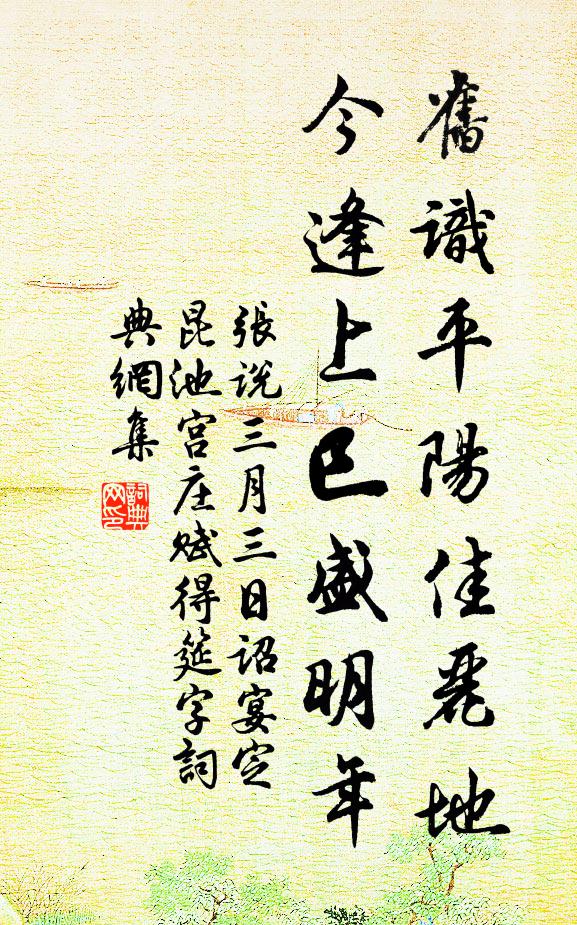 舊識平陽佳麗地
今逢上巳盛明年
張說三月三日詔宴定
昆池宮庄賦得筵字詞
典網集
詞典
网印